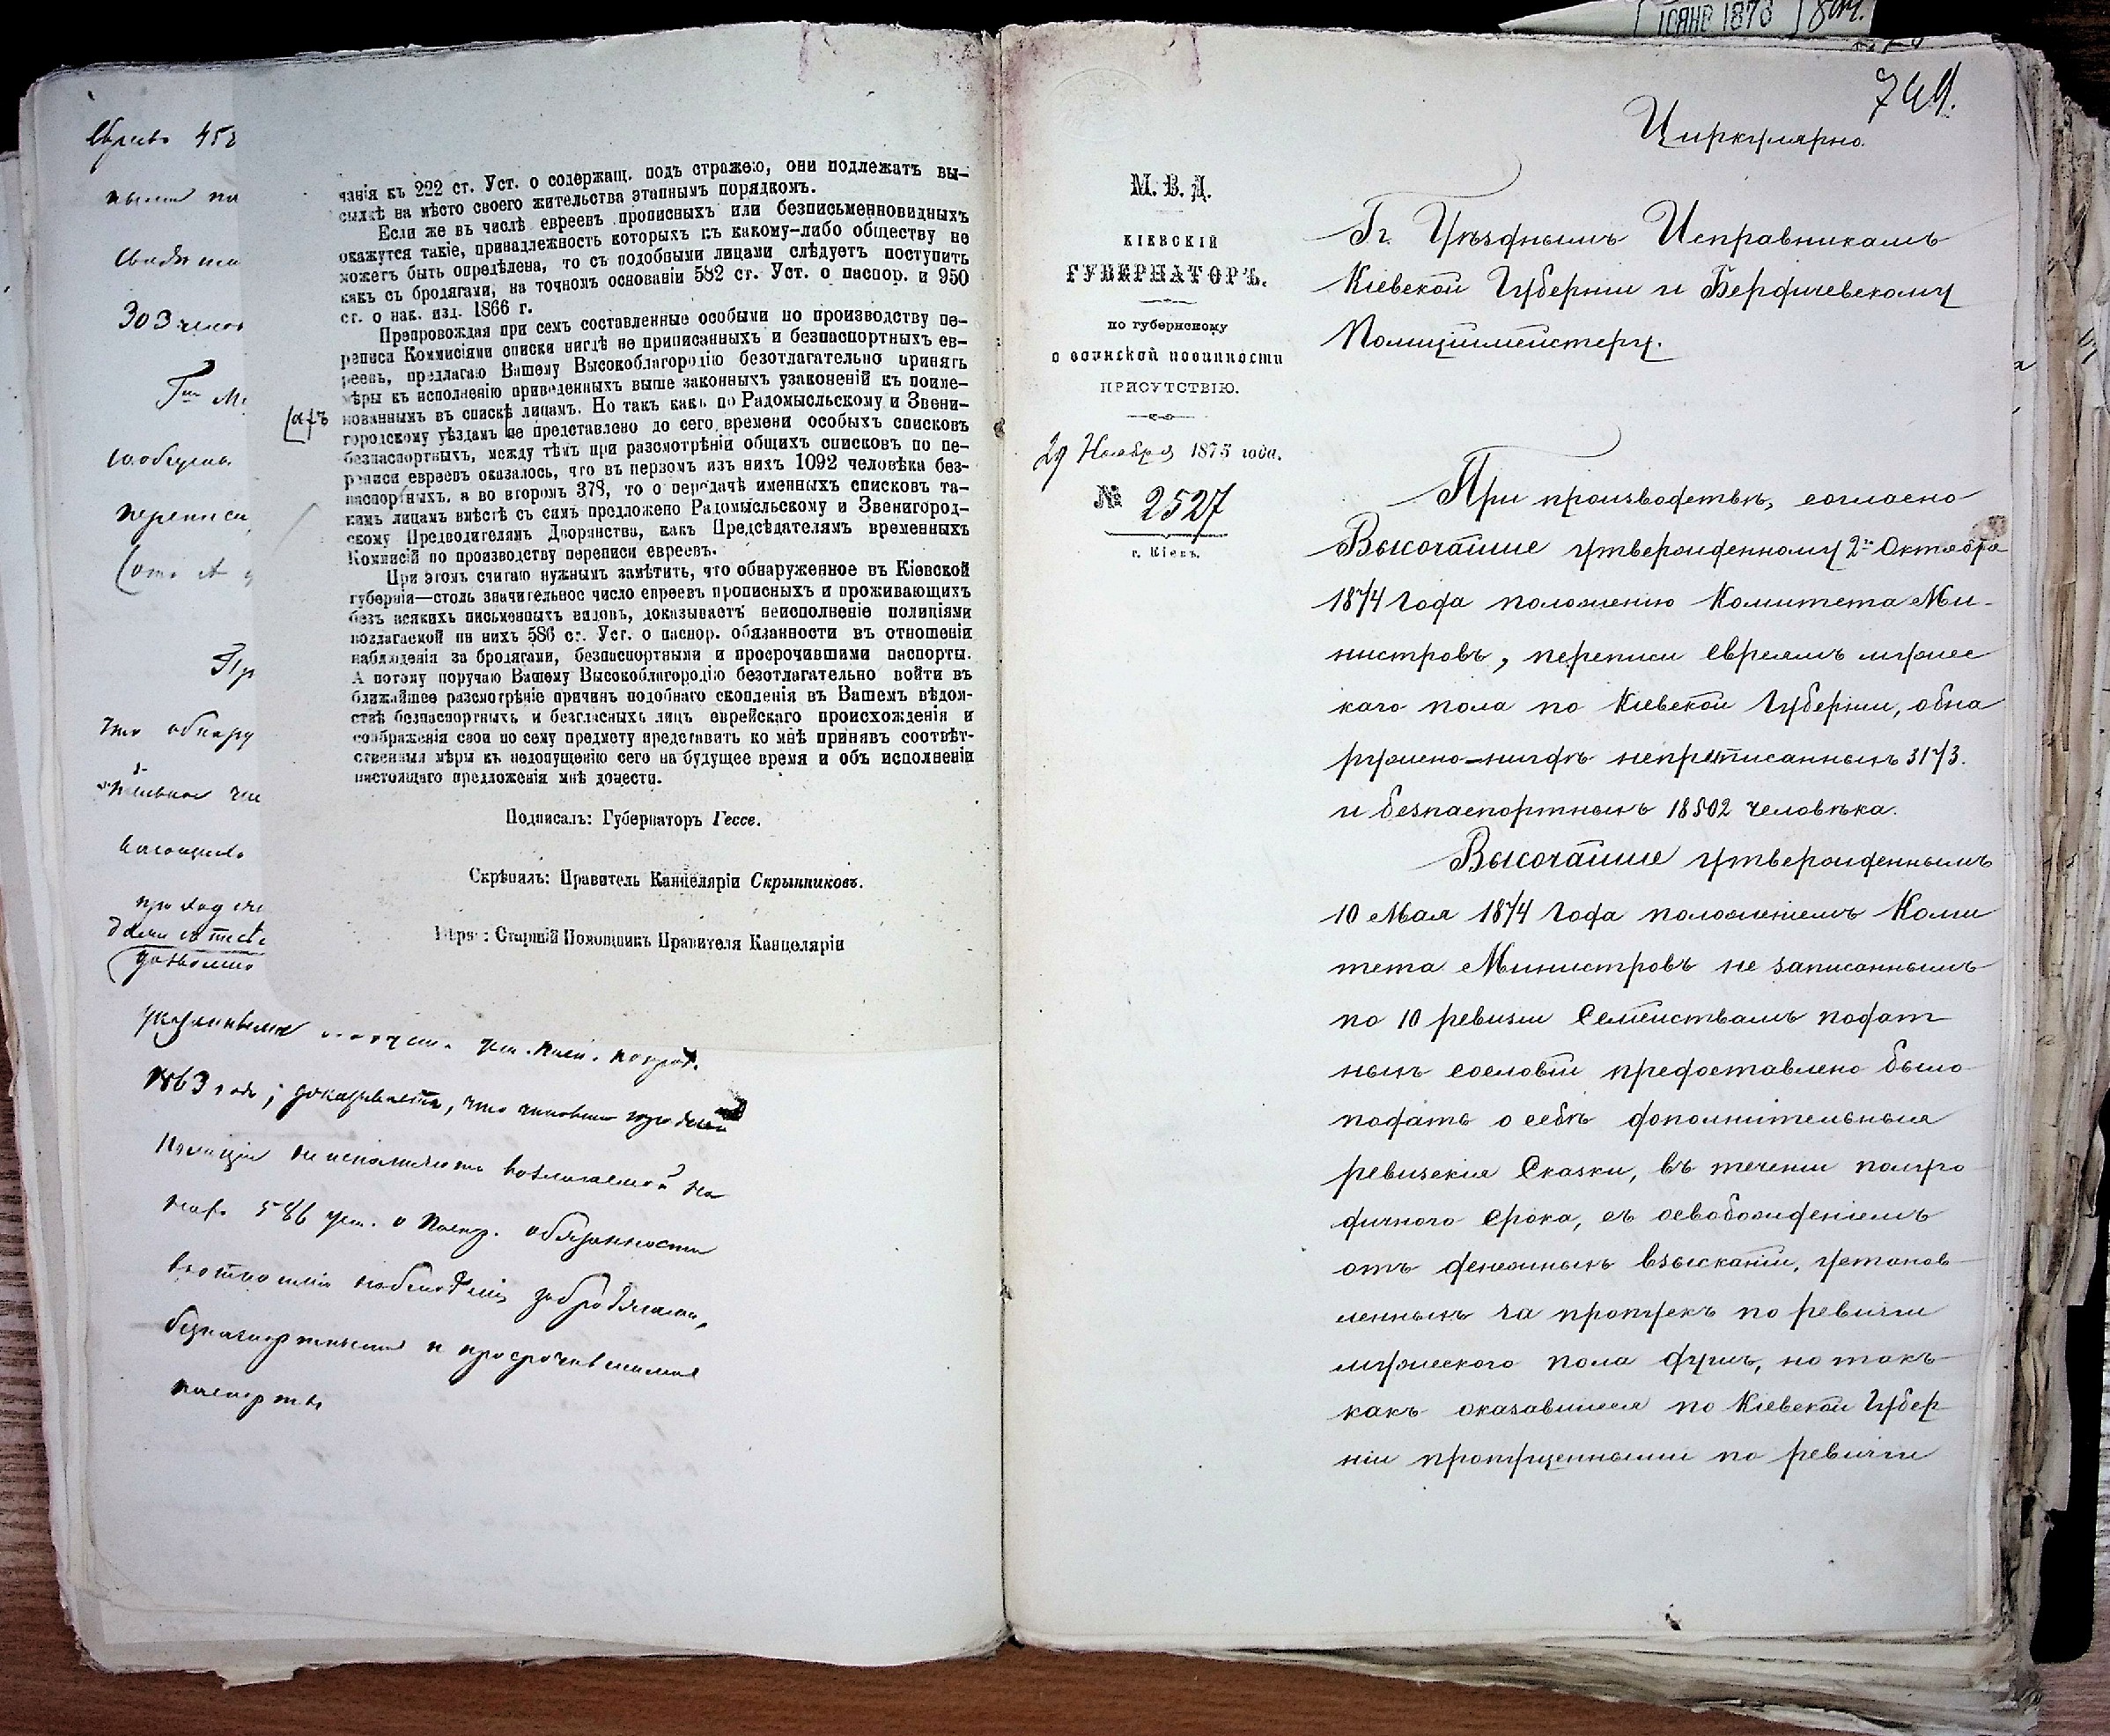 еврeевъ 45
303 челов
Гну Ми
сообщена
переписи
Пр
что обнару
чанія къ 222 ст. Уст. о содержащ. подъ стражею, они подлежатъ вы-
сылкѣ на мѣсто своего жительства этапнымъ порядкомъ.
Если же въ числѣ евреевъ прописныхъ или безписьменновидныхъ
окажутся такіе, принадлежность которыхъ къ какому-либо обществу не
можетъ быть опредѣлена, то съ подобными лицами слѣдуетъ поступить
какъ съ бродягами, на точномъ основаніи 582 ст. Уст. о паспор. и 950
ст. о нак. изд. 1866 г.
Препровождая при семъ составленные особыми по производству пе-
реписи Коммисіями списки нигдѣ не приписанныхъ и безпаспортныхъ ев-
реевъ, предлагаю Вашему Высокоблагородію безотлагательно принять
мѣры къ исполненію приведенныхъ выше законныхъ узаконеній къ поиме-
нованнымъ въ спискѣ лицамъ. Но такъ какъ по Радомысльскому и Звени-
городскому уѣздамъ не представлено до сего времени особыхъ списковъ
безпаспортныхъ, между тѣмъ при разсмотрѣніи общихъ списковъ по пе-
реписи евреевъ оказалось, что въ первомъ изъ нихъ 1092 человѣка без-
паспортныхъ, а во второмъ 378, то о передачѣ именныхъ списковъ та-
кимъ лицамъ вмѣстѣ съ симъ предложено Радомысльскому и Звенигород-
скому Предводителямъ Дворянства, какъ Предсѣдателямъ временныхъ
Комисій по производству переписи евреевъ.
При этомъ считаю нужнымъ замѣтить, что обнаруженное въ Кіевской
губерніи—столь значительное число евреевъ прописныхъ и проживающихъ
безъ всякихъ письменныхъ видовъ, доказываетъ неисполненіе полиціями
возлагаемой на нихъ 586 ст. Уст. о паспор. обязанности въ отношеніи
наблюденія за бродягами, безпаспортными и просрочившими паспорты.
А потому поручаю Вашему Высокоблагородію безотлагательно войти въ
ближайшее разсмотрѣніе причинъ подобнаго скопленія въ Вашемъ вѣдом-
ствѣ безпаспортныхъ и безгласныхъ лицъ еврейскаго происхожденія и
соображенія свои по сему предмету представить ко мнѣ принявъ соотвѣт-
ственныя мѣры къ недопущенію сего на будущее время и объ исполненіи
настоящаго предложенія мнѣ донести.
Подписалъ: Губернаторъ Гессе.
Скрѣпилъ: Правитель Канцеляріи Скрынниковъ.
Старшій Помощникъ Правителя Канцеляріи
1863 года; доказываетъ, что чиновники городской
полиціи не исполняютъ возлагаемой на
нихъ 586 уст. о паспор. обязанности
въ отношеніи наблюденія за бродягами,
безпаспортными и просрочившими
паспорты
10 ЯНВ 1876
744.
Циркулярно.
М. В. Д.
КІЕВСКІЙ
ГУБЕРНАТОРЪ.
по губернскому
о воинской повинности
ПРИСУТСТВІЮ.
29 Ноября 1875 года.
№ 2527
г. Кіевъ.
Гг. Уѣзднымъ Исправникамъ
Кіевской Губерніи и Бердичевскому
Полиціймейстеру.
При производствѣ, согласно
Высочайше утвержденному 2го Октября
1874 года положенію Комитета Ми-
нистровъ, переписи евреямъ мужес
каго пола по Кіевской Губерніи, обна
ружено нигдѣ неприписанныхъ 3173.
и безпаспортныхъ 18502 человѣка.
Высочайше утвержденнымъ
10 Мая 1874 года положеніемъ Коми
тета Министровъ не записаннымъ
по 10 ревизіи Семействамъ подат
ныхъ сословій предоставлено было
подать о себѣ дополнительныя
ревизскія Сказки, въ теченіи полуго
дичнаго срока, съ освобожденіемъ
отъ денежныхъ взысканій, установ
ленныхъ за пропускъ по ревизіи
мужескаго пола душъ, но такъ
какъ оказавшіеся по Кіевской Губер
ніи пропущенными по ревизіи